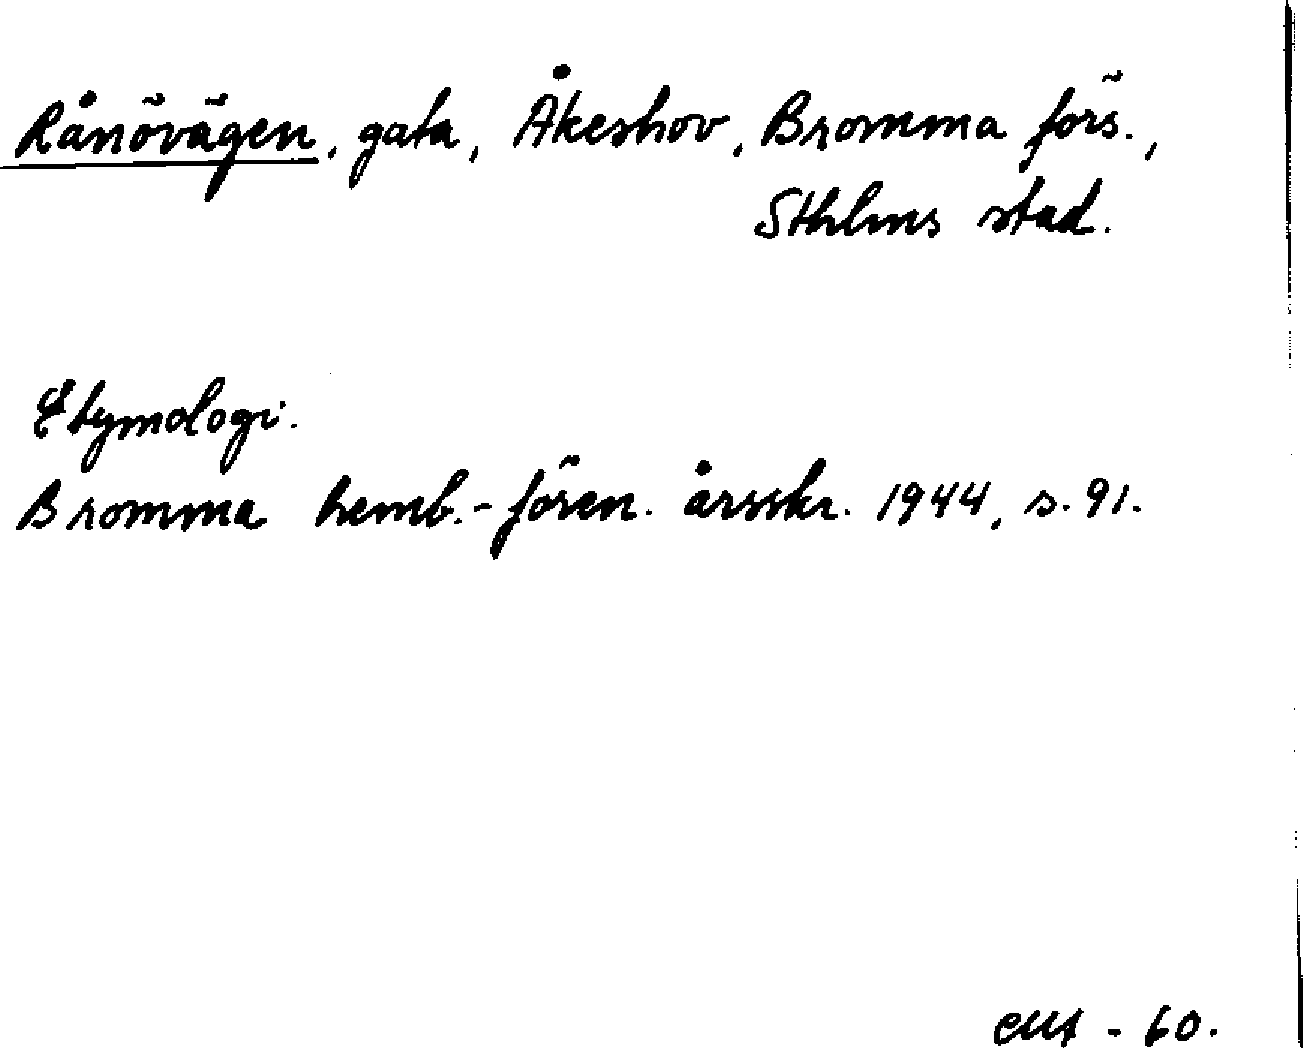 Rånövägen, gata, Åkeshov, Bromma förs.,
Sthlms stad.
Etymologi.
Bromma hemb.-fören. årsskr. 1944, s. 91.
- 60.